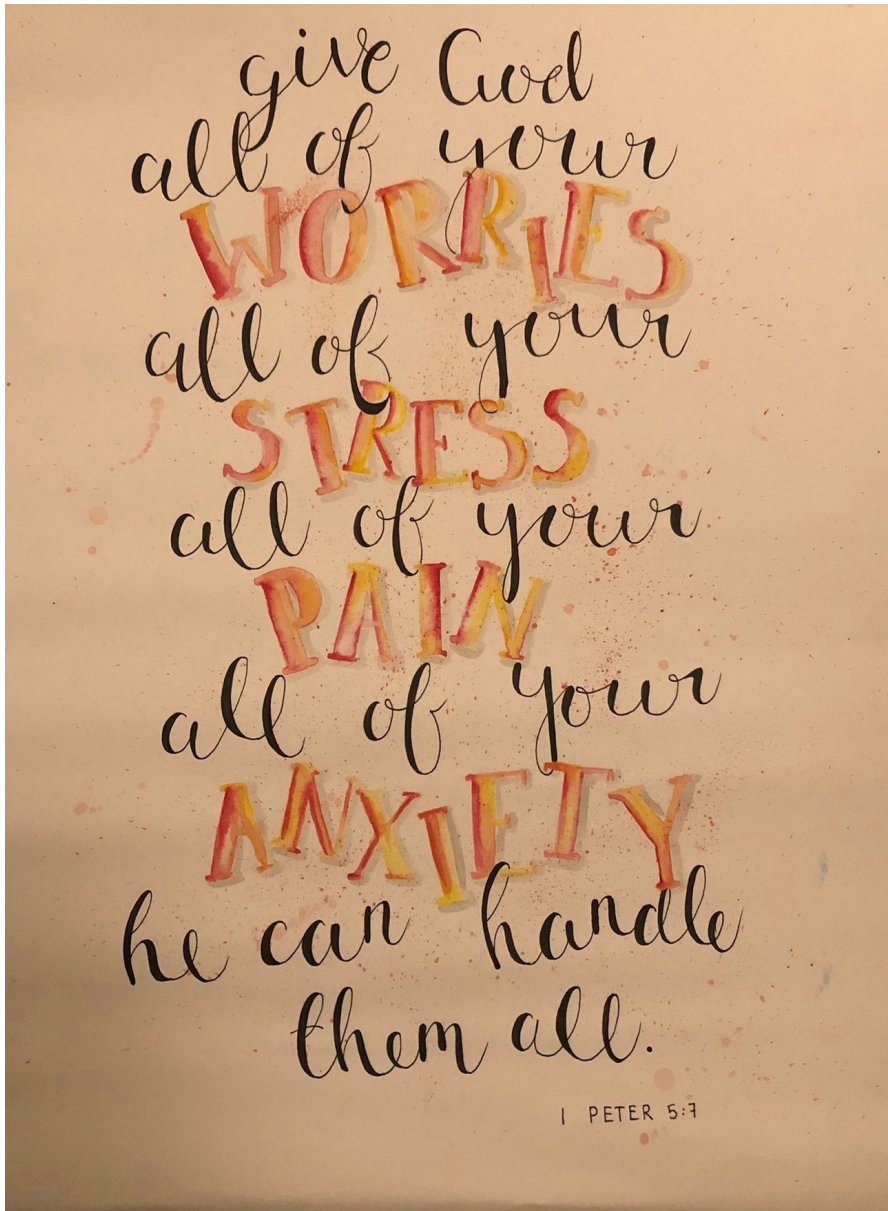 give God
all of your
WORRIES
all of your
STRESS
all of your
PAIN
all of your
ANXIETY
he can handle
them all.
1 PETER 5:7